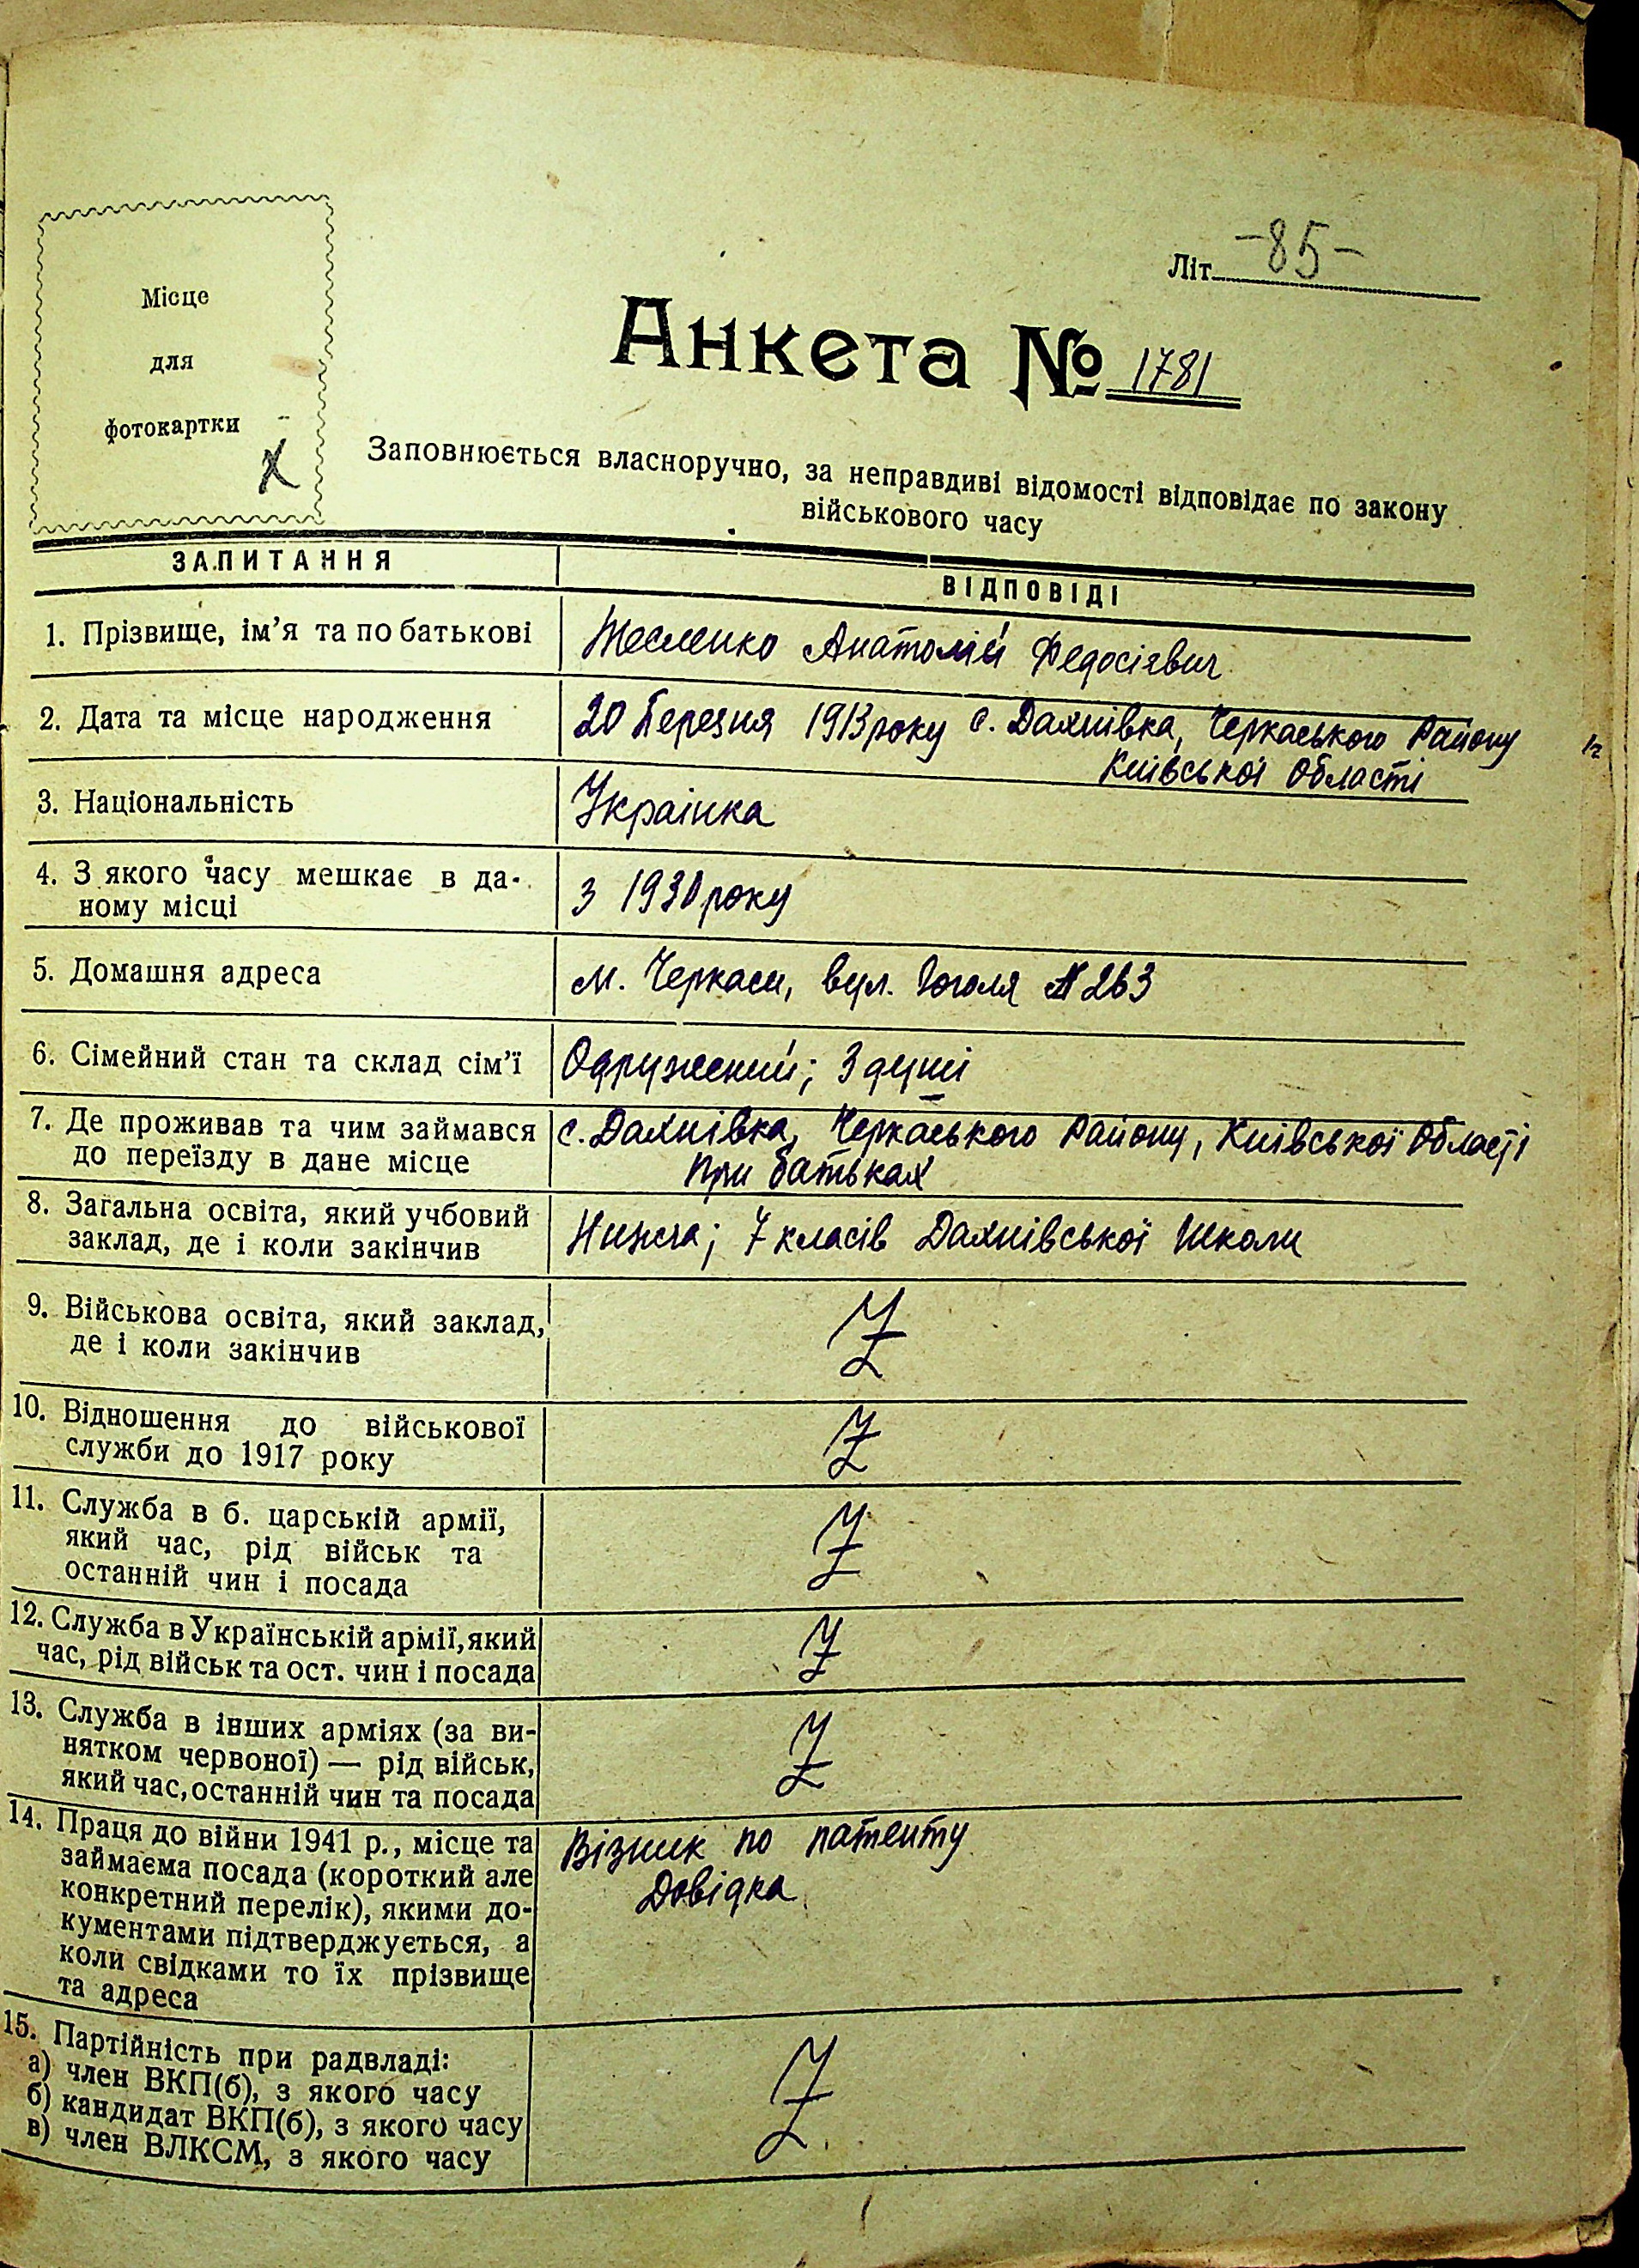 Літ. -85-
Місце
для
фотокартки
х
Анкета № 1781
Заповнюється власноручно, за неправдиві відомості відповідає по закону
військового часу
ЗАПИТАННЯ
ВІДПОВІДІ
1. Прізвище, ім’я та по батькові
Тесленко Анатолій Федосієвич
2. Дата та місце народження
20 Березня 1913 року с. Дахнівка, Черкаського Району
Київської Області
3. Національність
Українка
4. З якого часу мешкає в да-
ному місці
з 1930 року
5. Домашня адреса
м. Черкаси, вул. Гоголя № 263
6. Сімейний стан та склад сім’ї
Одружений; 3 душі
7. Де проживав та чим займався
до переїзду в дане місце
с. Дахнівка, Черкаського Району, Київської Області
при батьках
8. Загальна освіта, який учбовий
заклад, де і коли закінчив
Нижча; 7 класів Дахнівської Школи
9. Військова освіта, який заклад,
де і коли закінчив
10. Відношення до військової
служби до 1917 року
11. Служба в б. царській армії,
який час, рід військ та
останній чин і посада
12. Служба в Українській армії, який
час, рід військ та ост. чин і посада
13. Служба в інших арміях (за ви-
нятком червоної) — рід військ,
який час, останній чин та посада
14. Праця до війни 1941 р., місце та
займаєма посада (короткий але
конкретний перелік), якими до-
кументами підтверджується, а
коли свідками то їх прізвище
та адреса
Візник по патенту
Довідка
15. Партійність при радвладі:
а) член ВКП(б), з якого часу
б) кандидат ВКП(б), з якого часу
в) член ВЛКСМ, з якого часу